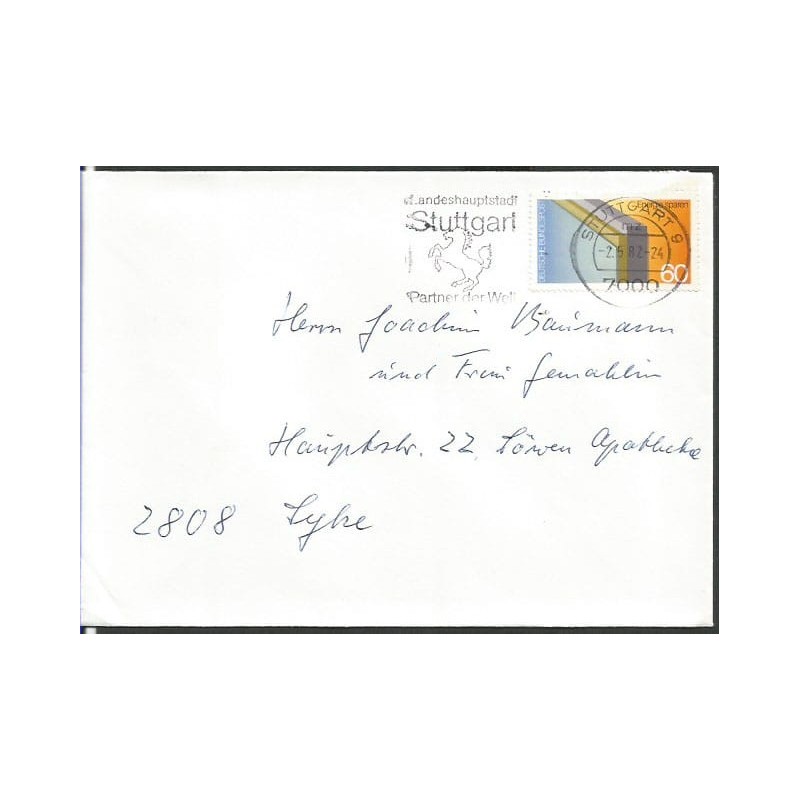 Landeshauptstadt
Stuttgart
Partner der Welt
DEUTSCHE BUNDESPOST
Energie sparen
60
STUTTGART 9
mz
-2.5.82-24
7000
Herrn Joachim Baumann
und Frau Gemahlin
Hauptstr. 22, Löwen Apotheke
2808 Syke